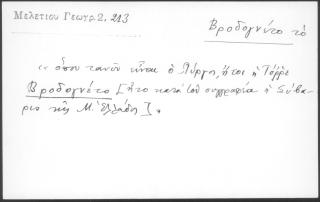 Μελετίου Γεωγρ. 2. 213
Βροδογνέτο τὸ
«ὅπου τανῦν εἶναι ὁ Πύργος, ἤτοι ἡ Τόρρε
Βροδογνέτο [ἦτο κατὰ τὸν συγγραφέα ἡ Σύβα-
ρις τῆς Μ. Ἑλλάδος].